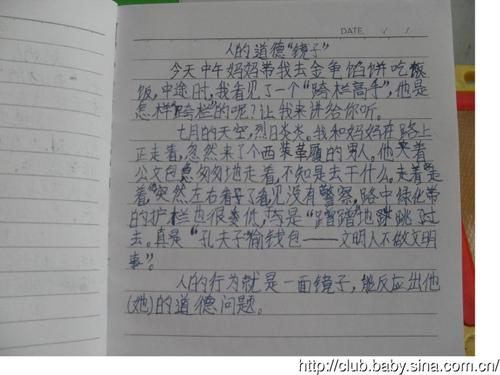 DATE / /
人的道德“镜子”
今天中午妈妈带我去金龟馅饼吃饭
饭,中途时,我看见了一个“跨栏高手”,他是
怎样“跨栏”的呢?让我来讲给你听。
七月的天空,烈日炎炎。我和妈妈在路上
正走着,忽然来了个西装革履的男人。他夹着
公文包匆匆地走着,不知是去干什么。走着走
着突然左右看了看见没有警察,路中绿化带
的护栏也很矮低,于是“蹭蹭”地跳过
去。真是“孔夫子偷钱包——文明人不做文明
事”。
人的行为就是一面镜子,能反应出他
(她)的道德问题。
http://club.baby.sina.com.cn/